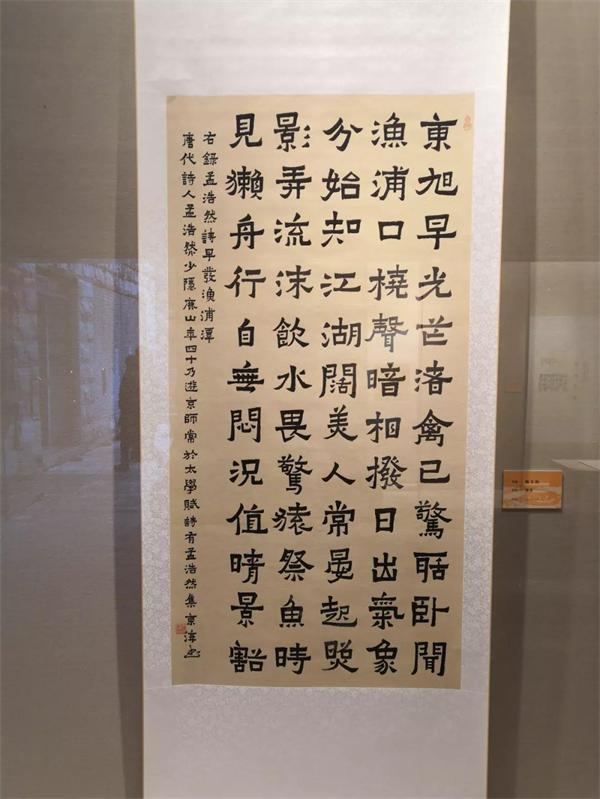 東旭早光芒渚禽已驚聒卧聞
漁浦口橈聲暗相撥日出氣象
分始知江湖闊美人常晏起照
影弄流沫飲水畏驚猿祭魚時
見獺舟行自無悶況值晴景豁
右録孟浩然詩早發漁浦潭
唐代詩人孟浩然少隱鹿山年四十乃遊京師常於太學賦詩有孟浩然集京津書